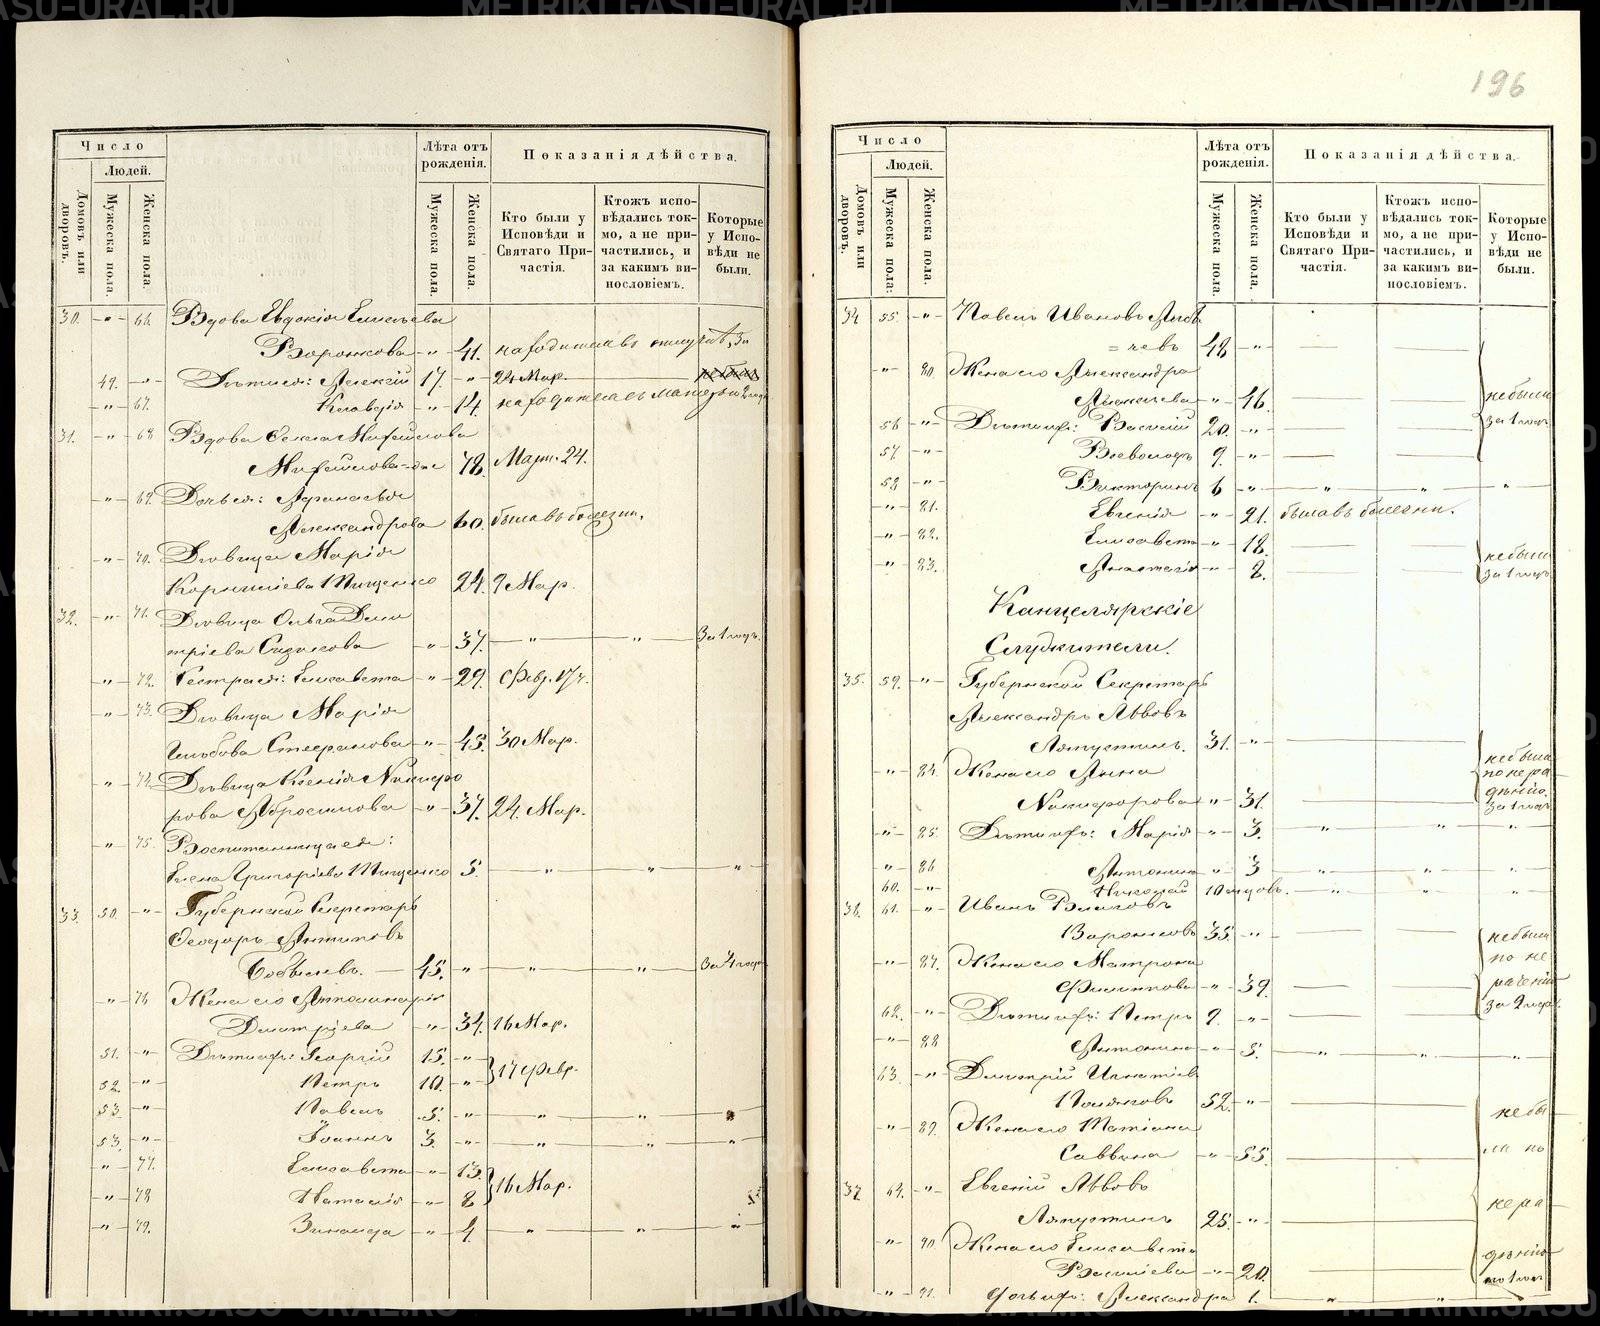 196
Число
Людей.
Домовъ или дворовъ.
Мужеска пола.
Женска пола.
Лѣта отъ рожденія.
Мужеска пола.
Женска пола.
Показанія дѣйства.
Кто были у Исповѣди и Святаго Причастія.
Ктожъ исповѣдались токмо, а не причастились, и за какимъ винословіемъ.
Которые у Исповѣди не были.
30. -"- 66. Вдова Евдокія
Воронкова -"- 41. находилась въ
49. -"- Дѣти ея: Алексій 17. -"- 24 Мар.
-"- 67. Клавдія -"- 14. находилась съ матерью
31. -"- 68 Вдова Ѳекла Михайлова
Михайловская 78. Март. 24.
-"- 69. Дочь ея: Афанасья
Александрова 60. была въ болезни.
-"- 70. Дѣвица Марія
Корнилиева Тищенко 24. 9 Мар.
32. -"- 71. Дѣвица Ольга Дми
тріева -"- 37. " " За 1 годъ.
-"- 72. Сестра ея: Елисавета -"- 29. Февр. 17 ч.
-"- 73. Дѣвица Марія
Глѣбова Стефанова -"- 45. 30 Мар.
-"- 74. Дѣвица Ксенія Никифо
рова Абросимова -"- 37. 24. Мар.
-"- 75. Воспитанница ея:
Елена Григоріева Тищенко 5. " " "
33. 50. -"- Губернской Секретарь
Ѳеодоръ Антиповъ
45. " " " За 4 года
-"- 76 Жена его Апполинарія
Дмитріева -"- 34. 16 Мар.
51. -"- Дѣти ихъ: Георгій 15. -"-
17 Февр.
52. -"- Петръ 10. -"-
53. -"- Павелъ 5. -"- " "
53. -"- Іоаннъ 3. -"- " " "
-"- 77. Елисавета -"- 13.
16 Мар.
-"- 78 Наталія -"- 8
-"- 79. Зинаида -"- 4. " " "
Число
Людей.
Домовъ или дворовъ.
Мужеска пола:
Женска пола.
Лѣта отъ рожденія.
Мужеска пола.
Женска пола.
Показанія дѣйства.
Кто были у Исповѣди и Святаго Причастія.
Ктожъ исповѣдались токмо, а не причастились, и за какимъ винословіемъ.
Которые у Исповѣди не были.
34 55. -"- Павелъ Ивановъ
= чевъ 48 -"-
-"- 80. Жена его Александра
Алексѣева -"- 46. не были
56 -"- Дѣти ихъ: Василій 20. -"- за 1 годъ.
57. -"- Всеволодъ 9. -"-
58. -"- Викторинъ 6 -"- " " "
-"- 81. Евгенія -"- 21. была въ болезни.
-"- 82. Елисавета -"- 18. не были
-"- 83. Анастасія -"- 8. за 1 годъ.
Канцелярскіе
Служители.
35. 59. -"- Губернской Секретарь
Александръ Львовъ
Ляпустинъ. 31. -"- не были
-"- 84. Жена его Анна по нера
дѣнію.
Никифорова -"- 31. за 1 годъ
-"- 85. Дѣти ихъ: Марія -"- 3. " " "
-"- 86 Антонина -"- 3 " " "
60. -"- Николай 10 мѣсцовъ. " " "
36. 61. -"- Иванъ
Воронковъ 35. -"- не были
-"- 87. Жена его Матрона по не
Филиппова -"- 39. радѣнію
62. -"- Дѣти ихъ: Петръ 9. -"- за 2 года.
-"- 88 Антонина -"- 5. " " "
63. -"- Дмитрій Игнатіев
Поляковъ 52. -"- не бы
-"- 89. Жена его Татіана
Саввина -"- 55. ли по
37. 64. -"- Евгеній Львовъ
Ляпустинъ 25. -"- нера
-"- 90. Жена его Елисавета дѣнію
Василіева -"- 20. за 1 годъ
-"- 91. Дочь ихъ: Александра 1. " " "